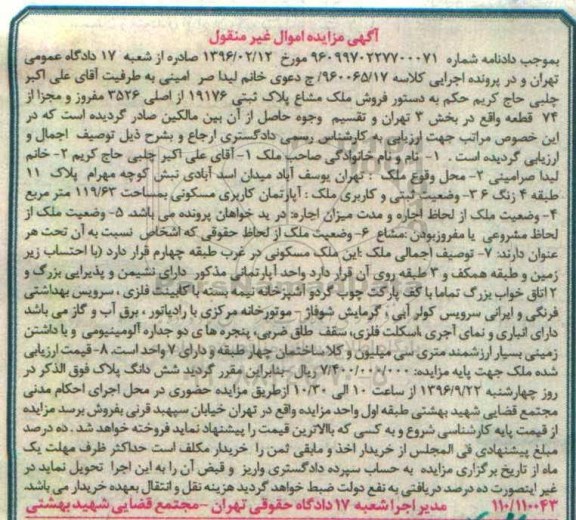 آگهی مزایده اموال غیر منقول
بموجب دادنامه شماره ۹۶۰۹۹۷۰۲۲۷۷۰۰۰۷۱ مورخ ۱۳۹۶/۰۲/۱۲ صادره از شعبه ۱۷ دادگاه عمومی
تهران و در پرونده اجرایی کلاسه ۹۶۰۰۶۵/۱۷/ ج دعوی خانم لیدا صر امینی به طرفیت آقای علی اکبر
چلبی حاج کریم حکم به دستور فروش ملک مشاع پلاک ثبتی ۱۹۱۷۶ از اصلی ۳۵۲۶ مفروز و مجزا از
۷۴ قطعه واقع در بخش ۳ تهران و تقسیم وجوه حاصل از آن بین مالکین صادر گردیده است که در
این خصوص مراتب جهت ارزیابی به کارشناس رسمی دادگستری ارجاع و بشرح ذیل توصیف اجمال و
ارزیابی گردیده است . ۱- نام و نام خانوادگی صاحب ملک ۱- آقای علی اکبر چلبی حاج کریم ۲- خانم
لیدا صرامینی ۲- محل وقوع ملک : تهران یوسف آباد میدان اسد آبادی نبش کوچه مهرام پلاک ۱۱
طبقه ۴ زنگ ۶ ۳- وضعیت ثبتی و کاربری ملک : آپارتمان کاربری مسکونی بمساحت ۱۱۹/۶۳ متر مربع
۴- وضعیت ملک از لحاظ اجاره و مدت میزان اجاره: در ید خواهان پرونده می باشد. ۵- وضعیت ملک از
لحاظ مشروعی یا مفروزبودن :مشاع ۶- وضعیت ملک از لحاظ حقوقی که اشخاص نسبت به آن تحت هر
عنوان دارند: ۷- توصیف اجمالی ملک :این ملک مسکونی در غرب طبقه چهارم قرار دارد (با احتساب زیر
زمین و طبقه همکف و ۳ طبقه روی آن قرار دارد واحد آپارتمانی مذکور دارای نشیمن و پذیرایی بزرگ و
۲ اتاق خواب بزرگ تماما با کف پارکت چوب گردو آشپزخانه نیمه بسته با کابینت فلزی ، سرویس بهداشتی
فرنگی و ایرانی سرویس کولر آبی ، گرمایش شوفاژ - موتورخانه مرکزی با رادیاتور ، برق آب و گاز می باشد
دارای انباری و نمای آجری ،اسکلت فلزی، سقف طاق ضربی، پنجره های دو جداره آلومینیومی و با داشتن
زمینی بسیار ارزشمند متری سی میلیون و کلا ساختمان چهار طبقه و دارای ۷ واحد است. ۸- قیمت ارزیابی
شده ملک جهت پایه مزایده: ۷/۴۰۰/۰۰۰/۰۰۰ ریال بنابراین مقرر گردید شش دانگ پلاک فوق الذکر در
روز چهارشنبه ۱۳۹۶/۹/۲۲ از ساعت ۱۰ الی ۱۰/۳۰ ازطریق مزایده حضوری در محل اجرای احکام مدنی
مجتمع قضایی شهید بهشتی طبقه اول واحد مزایده واقع در تهران خیابان سپهبد قرنی بفروش برسد مزایده
از قیمت پایه کارشناسی شروع و به کسی که بالاترین قیمت را پیشنهاد نماید فروخته خواهد شد . ده درصد
مبلغ پیشنهادی فی المجلس از خریدار اخذ و مابقی ثمن را خریدار مکلف است حداکثر ظرف مهلت یک
ماه از تاریخ برگزاری مزایده به حساب سپرده دادگستری واریز و قبض آن را به این اجرا تحویل نماید در
غیر اینصورت ده درصد دریافتی به نفع دولت ضبط خواهد گردید هزینه نقل و انتقال بعهده خریدار می باشد.
۱۱۰/۱۱۰۰۴۳ مدیر اجرا شعبه ۱۷ دادگاه حقوقی تهران - مجتمع قضایی شهید بهشتی